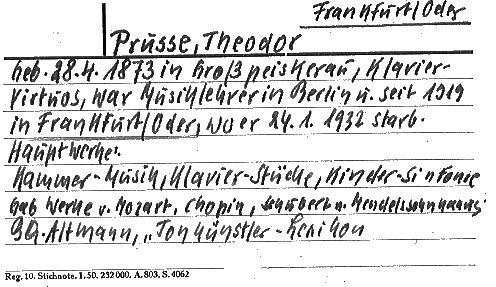 Frankfurt/Oder
Prüsse, Theodor
Geb. 28.4. 1873 in Großpeiskerau, Klavier-
virtuos, war Musiklehrer in Berlin u. seit 1919
in Frankfurt/Oder, wo er 24.1. 1932 starb.
Hauptwerke:
Kammer-Musik, Klavier-Stücke, Kinder-Sinfonie
gab Werke v. Mozart, Chopin, Schubert u. Mendelssohn
Altmann, „Tonkünstler-Lexikon
Reg. 10. Stichnote. I. 50. 232000. A. 803. S. 4062